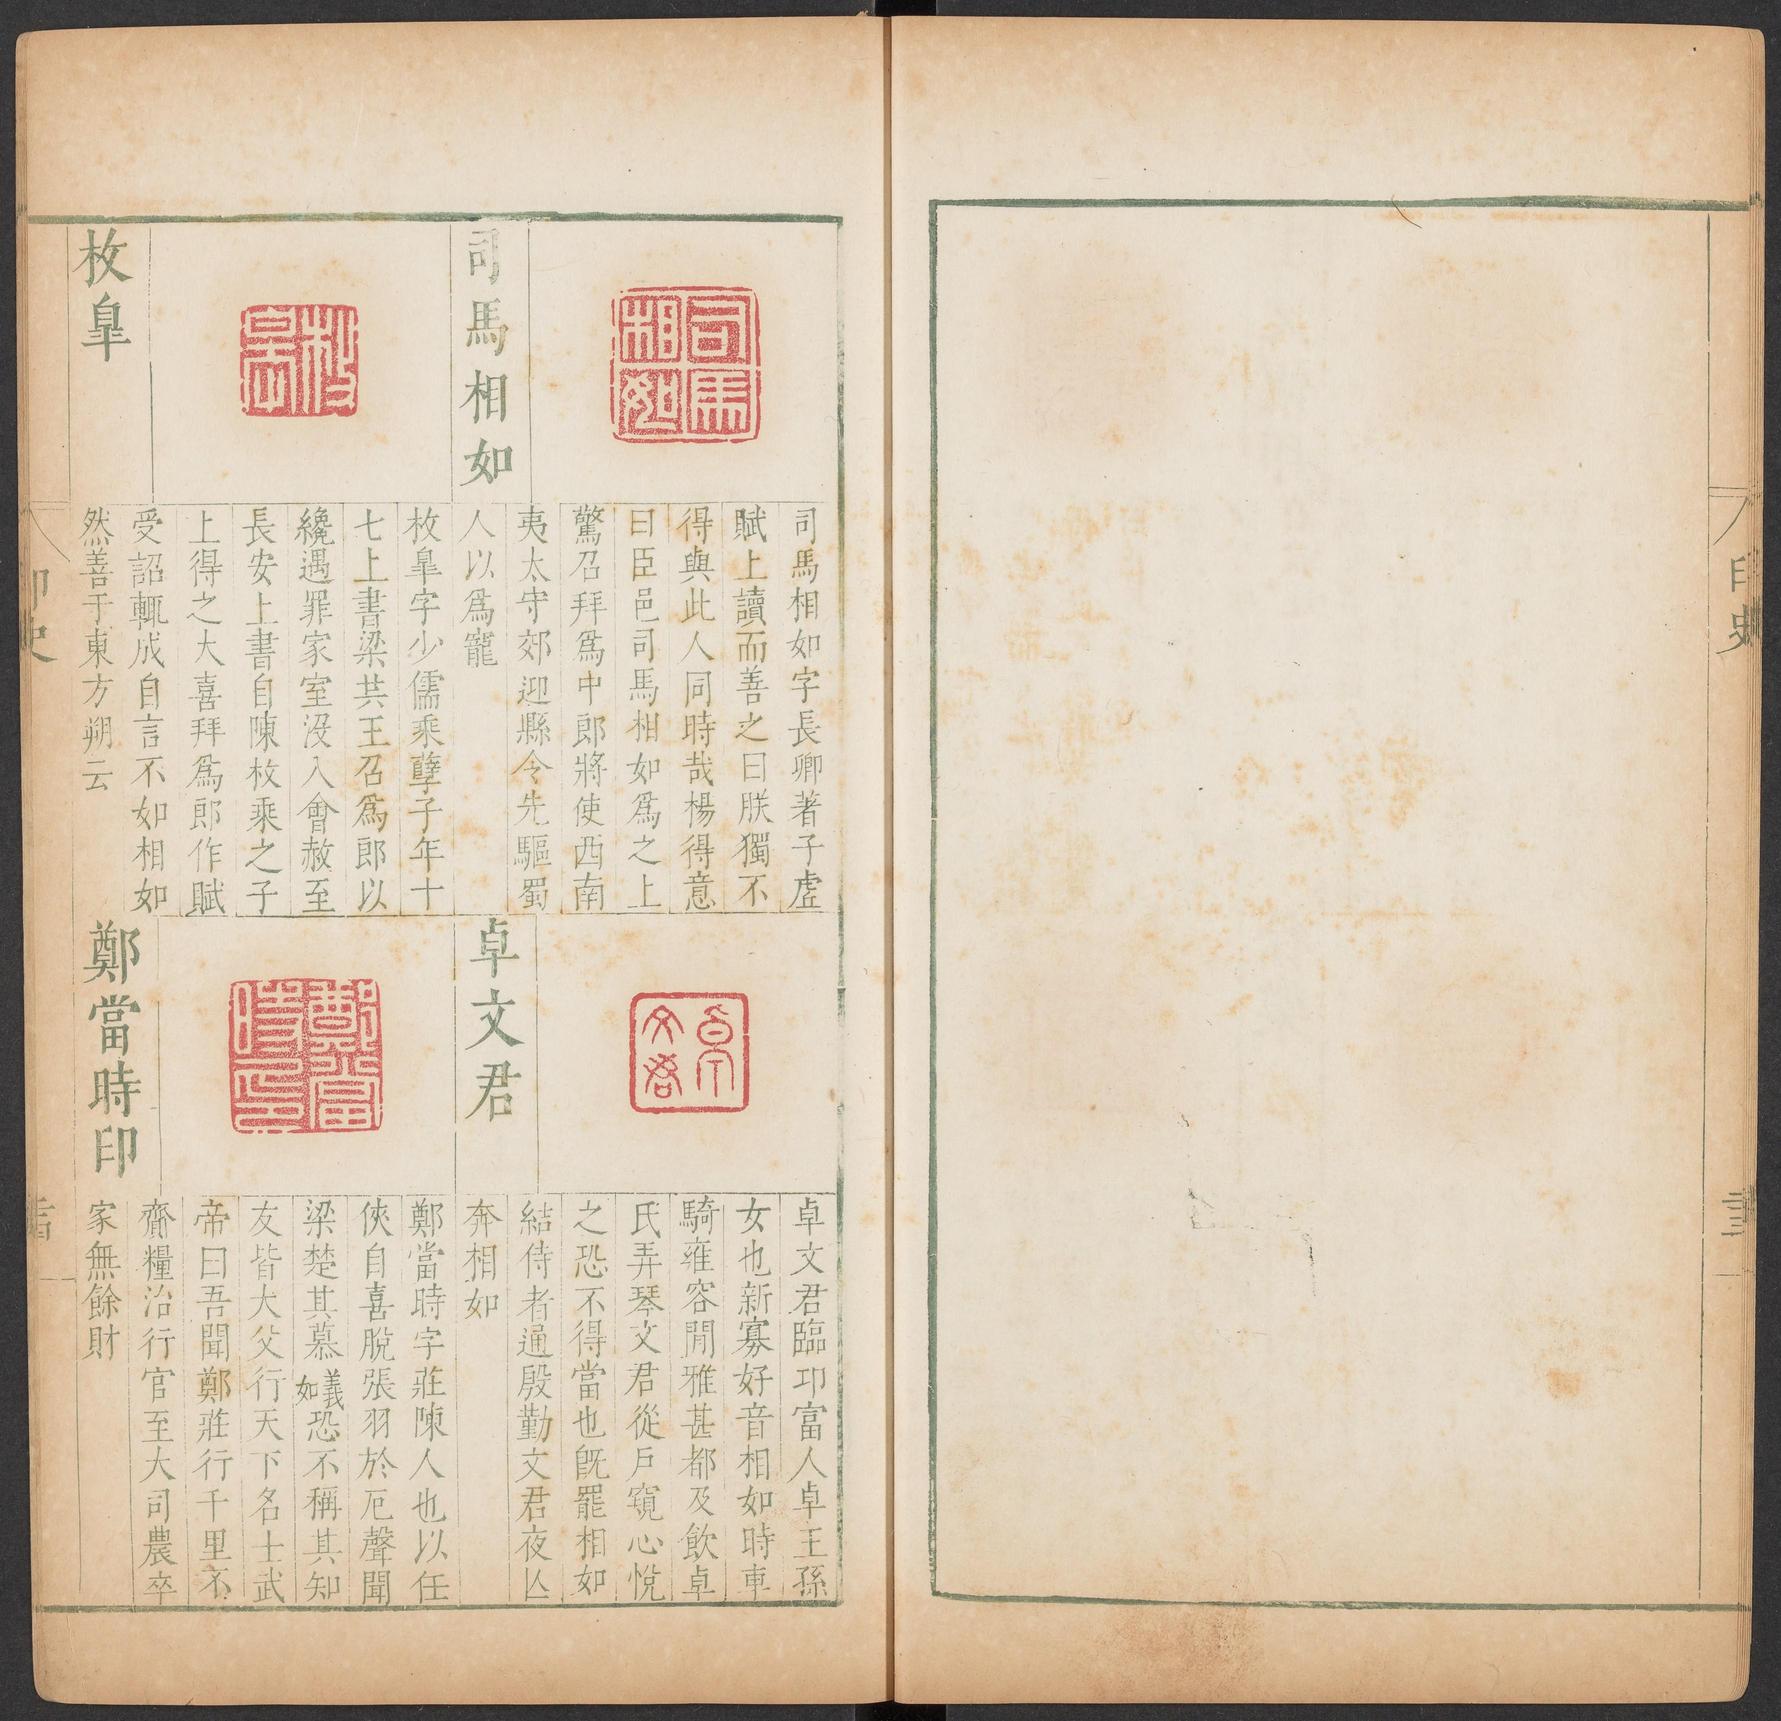 印史
司馬相如
司馬相如
司馬相如字長卿著子虛
賦上讀而善之曰朕獨不
得與此人同時哉楊得意
曰臣邑司馬相如爲之上
驚召拜爲中郎將使西南
夷太守郊迎縣令先驅蜀
人以爲寵
枚皐
枚皐
枚皐字少儒乘孽子年十
七上書梁共王召爲郎以
纔遇罪家室沒入會赦至
長安上書自陳枚乘之子
上得之大喜拜爲郎作賦
受詔輒成自言不如相如
然善于東方朔云
卓文君
卓文君
卓文君臨卭富人卓王孫
女也新寡好音相如時車
騎雍容閒雅甚都及飲卓
氏弄琴文君從戶窺心悅
之恐不得當也旣罷相如
結侍者通殷勤文君夜亾
奔相如
鄭當時印
鄭當時印
鄭當時字莊陳人也以任
俠自喜脫張羽於厄聲聞
梁楚其慕義如恐不稱其知
友皆大父行天下名士武
帝曰吾聞鄭莊行千里不
齎糧治行官至大司農卒
家無餘財
印史